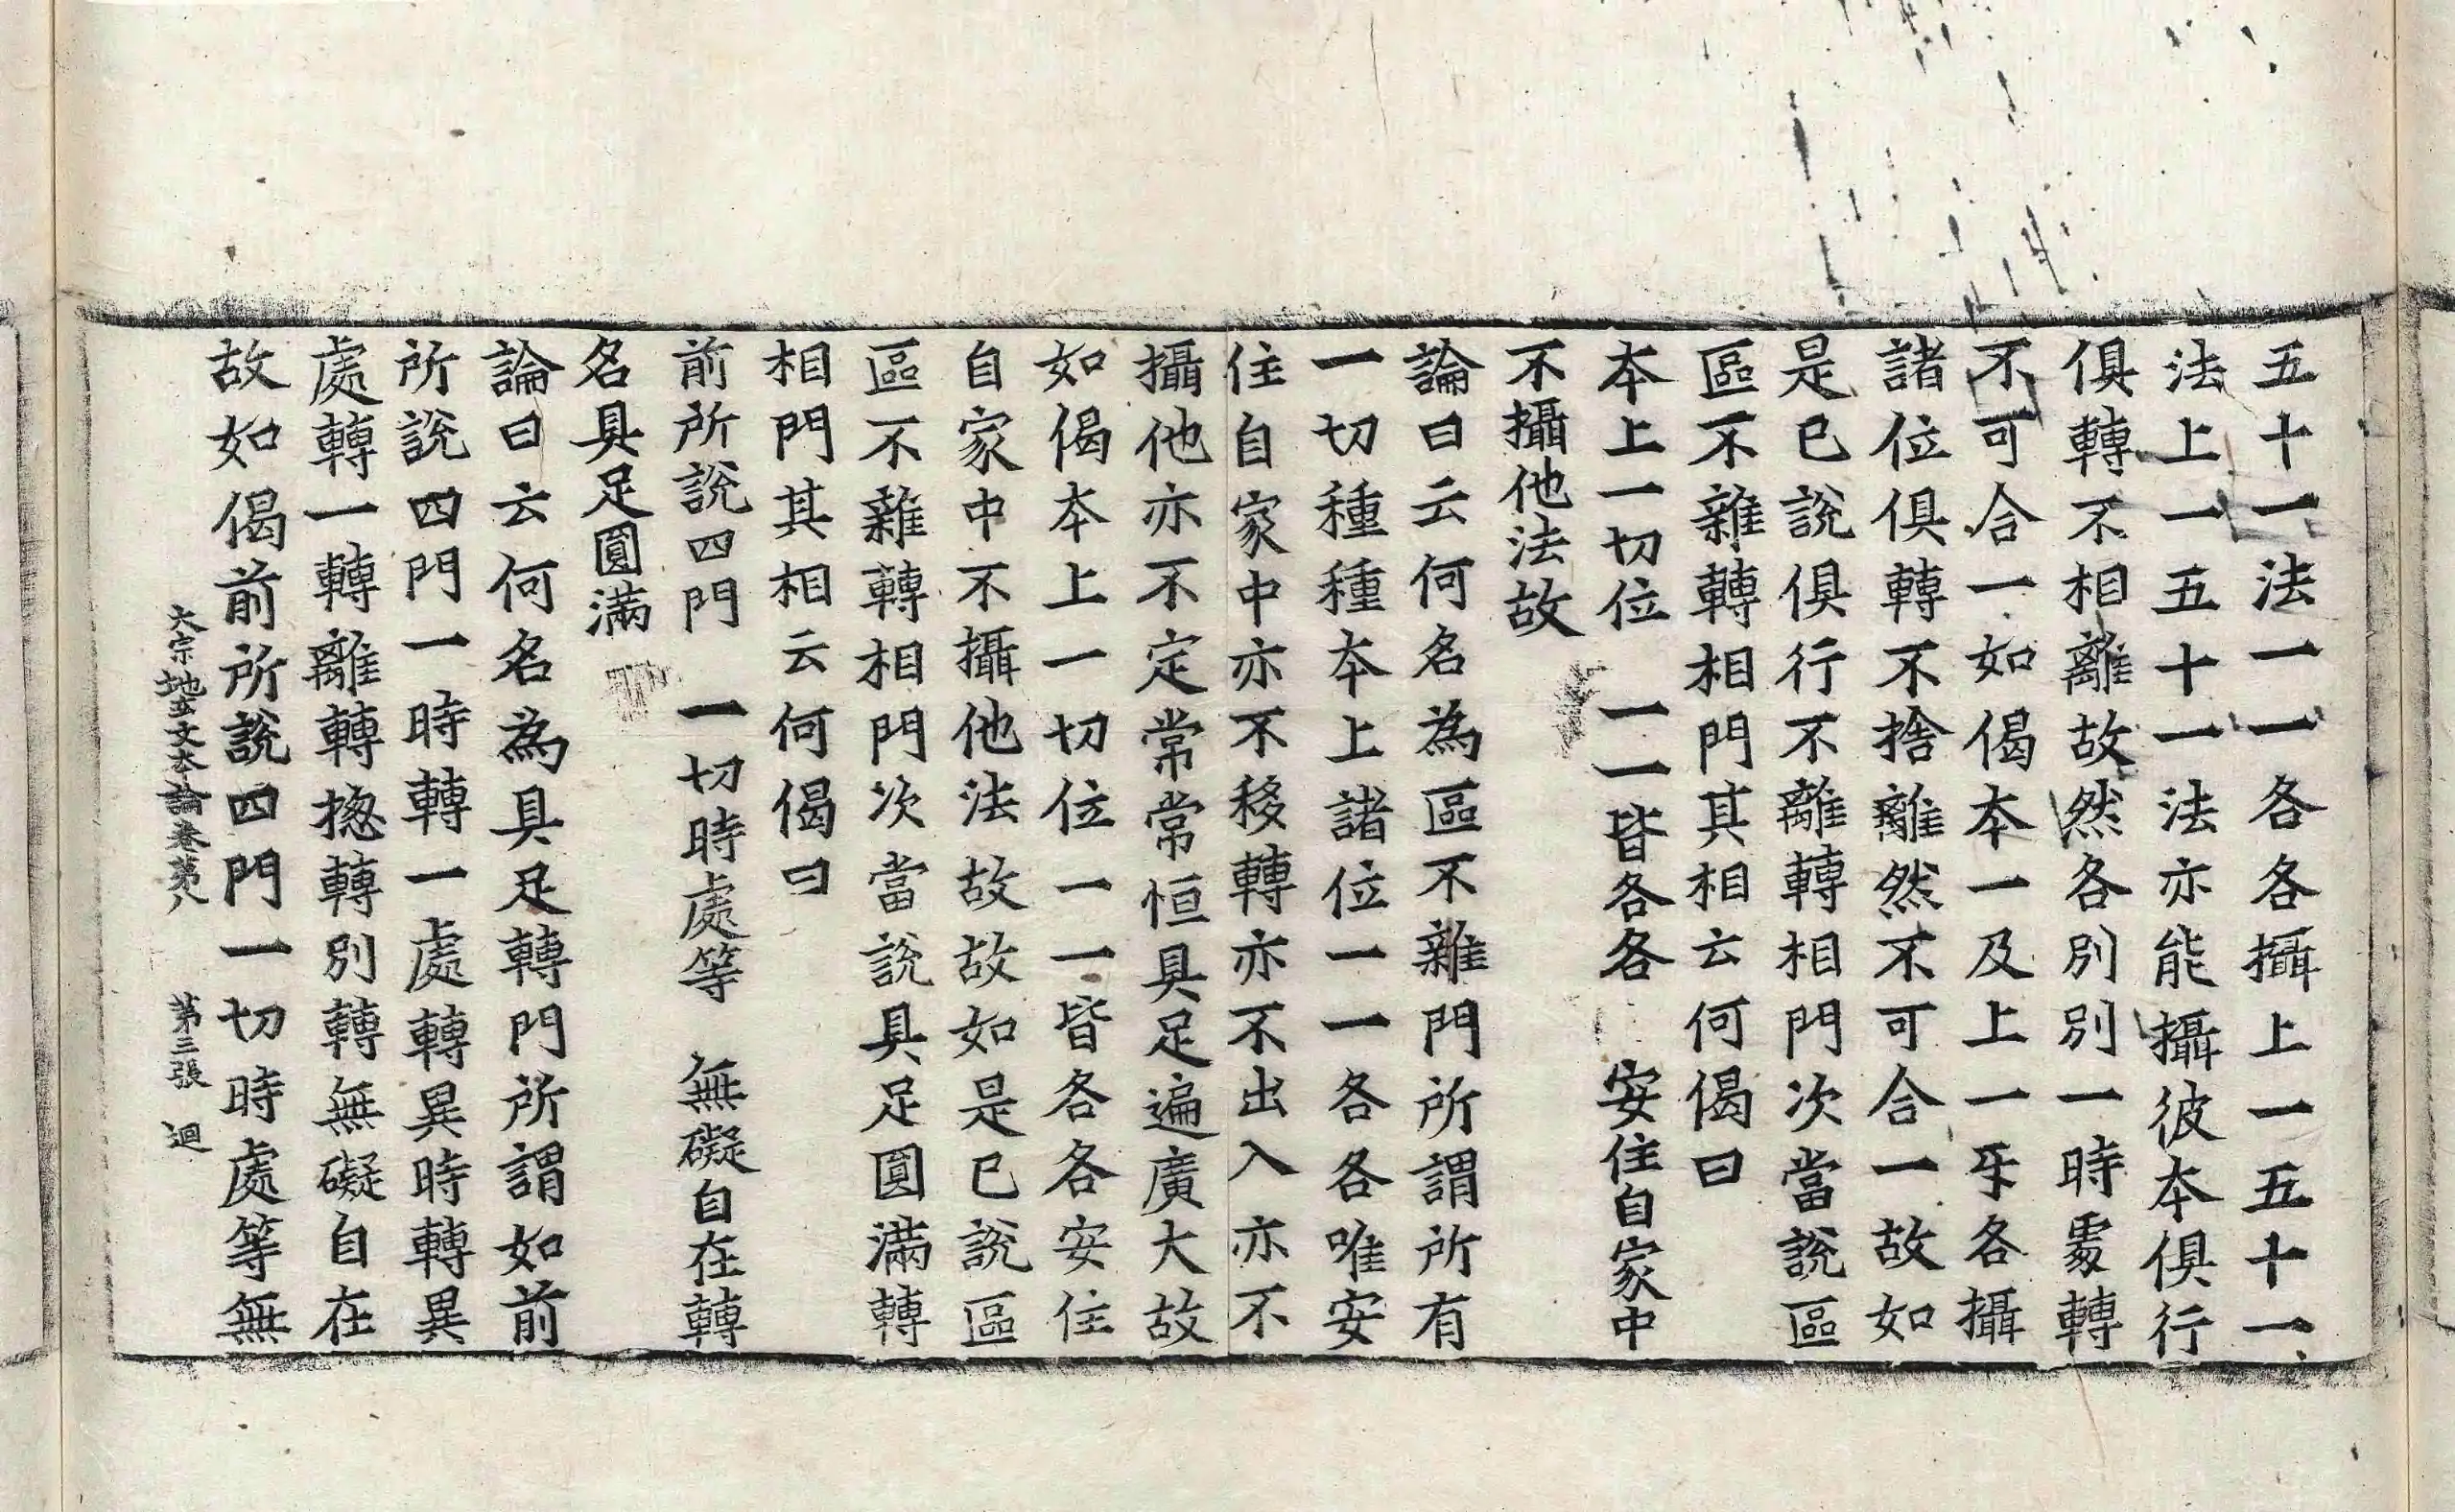 五十一法一一各各攝上一五十一
法上一五十一法亦能攝彼本俱行
俱轉不相離故然各別別一時處轉
不可合一如偈本一及上一㸦各攝
諸位俱轉不捨離然不可合一故如
是已說俱行不離轉相門次當說區
區不雜轉相門其相云何偈曰
本上一切位 一一皆各各 安住自家中
不攝他法故
論曰云何名為區不雜門所謂所有
一切種種本上諸位一一各各唯安
住自家中亦不移轉亦不出入亦不
攝他亦不定常常恒具足遍廣大故
如偈本上一切位一一皆各各安住
自家中不攝他法故故如是已說區
區不雜轉相門次當說具足圓滿轉
相門其相云何偈曰
前所說四門 一切時處等 無礙自在轉
名具足圓滿
論曰云何名為具足轉門所謂如前
所說四門一時轉一處轉異時轉異
處轉一轉離轉摠轉別轉無礙自在
故如偈前所說四門一切時處等無
大宗地玄文本論卷第八 第三張 迴